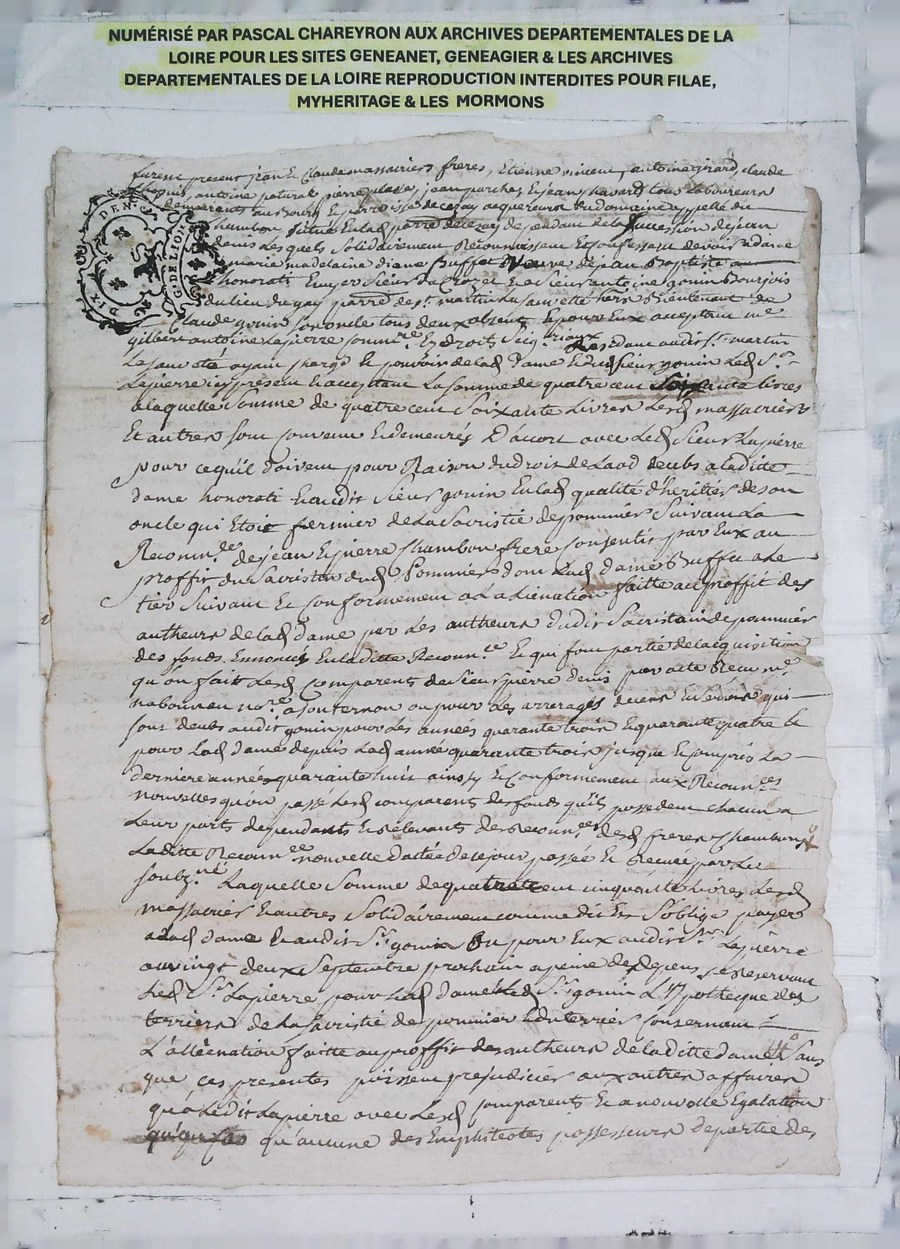 NUMÉRISÉ PAR PASCAL CHAREYRON AUX ARCHIVES DEPARTEMENTALES DE LA
LOIRE POUR LES SITES GENEANET, GENEAGIER & LES ARCHIVES
DEPARTEMENTALES DE LA LOIRE REPRODUCTION INTERDITES POUR FILAE,
MYHERITAGE & LES MORMONS
furent present jean et Claude massacriers freres, Etienne vincent, antoine girard, claude
antoine patural pierre jean et jean tous laboureurs
demeurants au bourg et parroisse de cezay acquereurs du domaine appellé du
Chambon situé en lad parre de cezay dependant de la succession de jean
denis lesquels solidairement Reconnoissent et confessent devoir a dame
marie madelaine diane Buffet veuve de jean Baptiste
honorati Ecuyer sieur du Crozet et a sieur antoine gonin Bourgeois
du lieu du gay parre de st martin la sauveté
Claude gonin son oncle tous deux absents et pour Eux acceptant me
gilbert antoine Lapierre comm.re Es droits seig.riaux dud st martin
la sauveté ayant charge et pouvoir de lad dame et dud sieur gonin Led s.r
Lapierre icy present et acceptant La somme de quatre cent soixante livres
a laquelle somme de quatre cent soixante Livres Lesd massacriers
Et autres sont convenu et demeurés D'accort avec Led sieur Lapierre
pour ce qu'il doivent pour Raison du droit de Laod deubs a ladite
dame honorati et audit sieur gonin en lad qualité d'heritier de son
oncle qui Etoit fermier de La sacristie de pommier suivant La
Reconn.ce de jean et pierre Chambon frere consentis par Eux au
proffit du sacristan dud Pommier dont lad dame Buffet a le
tier suivant et conformement a L alienation faitte au proffit des
autheurs de lad dame par les autheurs dudit sacristain de pommier
des fonds Ennoncés en laditte Reconn.ce Et qui font partie de lacquisition
qu'on fait Lesd comparents de sieur pierre denis par acte Recu me
no.re a souternon ou pour des arrerages de cens et servis qui
sont deubs audit gonin pour Les années quarante trois et quarante quatre Et
pour Lad dame depuis Lad année quarante trois jusque et compris La
derniere année quarante huit ainsy et conformement aux Reconn.ces
nouvelles qu'on passé Lesd comparents des fonds qu'ils possedent chacun a
Leur parts dependants et Relevants des Reconn.ces desd freres Chambon
Laditte Reconn.ce nouvelle dattée de ce jour passée et Recue par Le
soubz.né Laquelle somme de quatre cent cinquante Livres Lesd
massacriés et autres solidairement comme dit Est s'oblige payer
a Lad dame et audit s.r gonin ou pour Eux audit s.r Lapierre
au vingt deux septembre prochain a peine des depens se Reservant
Led s.r Lapierre pour Lad dame et Led s.r gonin L'Hypotheque des
terriers de La sacristie de pommier et du terrier consernant
L'allenation faitte au proffit des autheurs de laditte dame sans
que ces presentes puissent prejudicier aux autres affaires
qu'a Ledit Lapierre avec Lesd comparents et a nouvelle Egalation
qu'aucune des Emphiteotes possesseurs de partie des